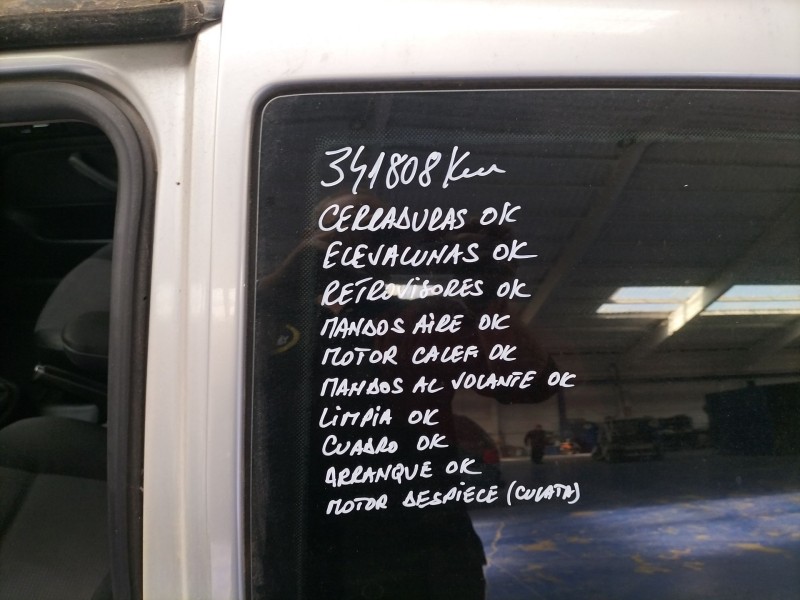 341808 Km
CERRADURAS OK
ELEVALUNAS OK
RETROVISORES OK
MANDOS AIRE OK
MOTOR CALEF OK
MANDOS AL VOLANTE OK
LIMPIA OK
CUADRO OK
ARRANQUE OK
MOTOR DESPIECE (CULATA)